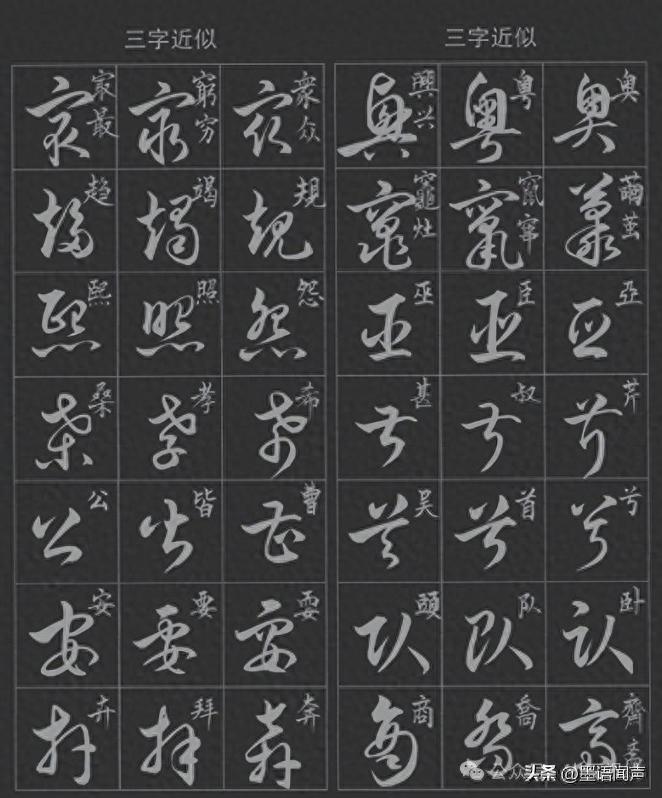 三字近似 三字近似
冣最 窮穷 衆众 興兴 粤 奥
趋 竭 規 竈灶 竄窜 繭茧
熙 照 怨 巫 臣 亞
桑 孝 希 甚 叔 芹
公 皆 曹 吴 首 兮
安 要 耍 頭 队 卧
卉 拜 奔 商 喬 齊
头条 @墨语闻声